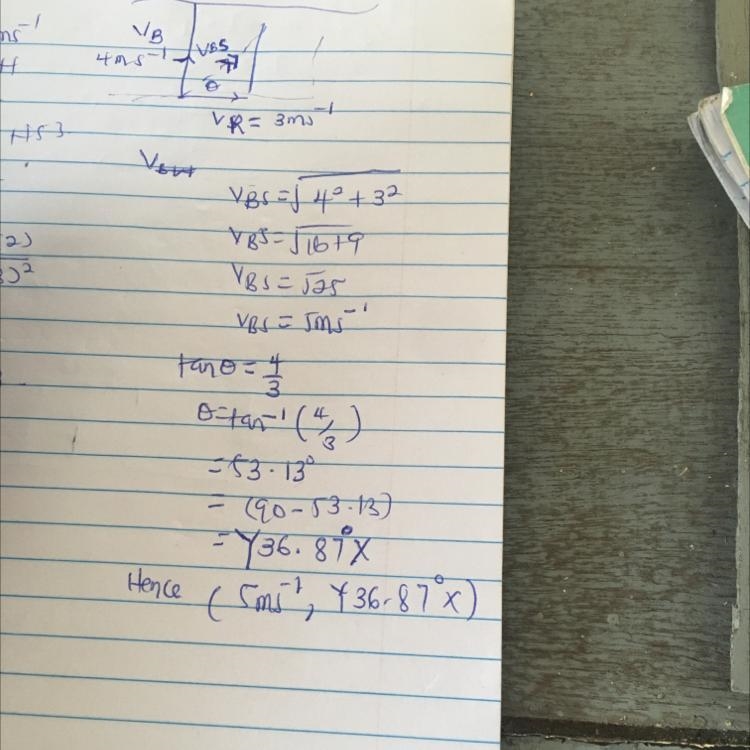 ms⁻¹
H
V_B
4ms⁻¹
V_BS
θ
V_R = 3ms⁻¹
V_BS = √4² + 3²
V_BS = √16+9
2)
3)²
V_BS = √25
V_BS = 5ms⁻¹
tanθ = 4/3
θ = tan⁻¹ (4/3)
= 53.13°
= (90 - 53.13)
= Y36.87°X
Hence (5ms⁻¹, Y36.87°X)